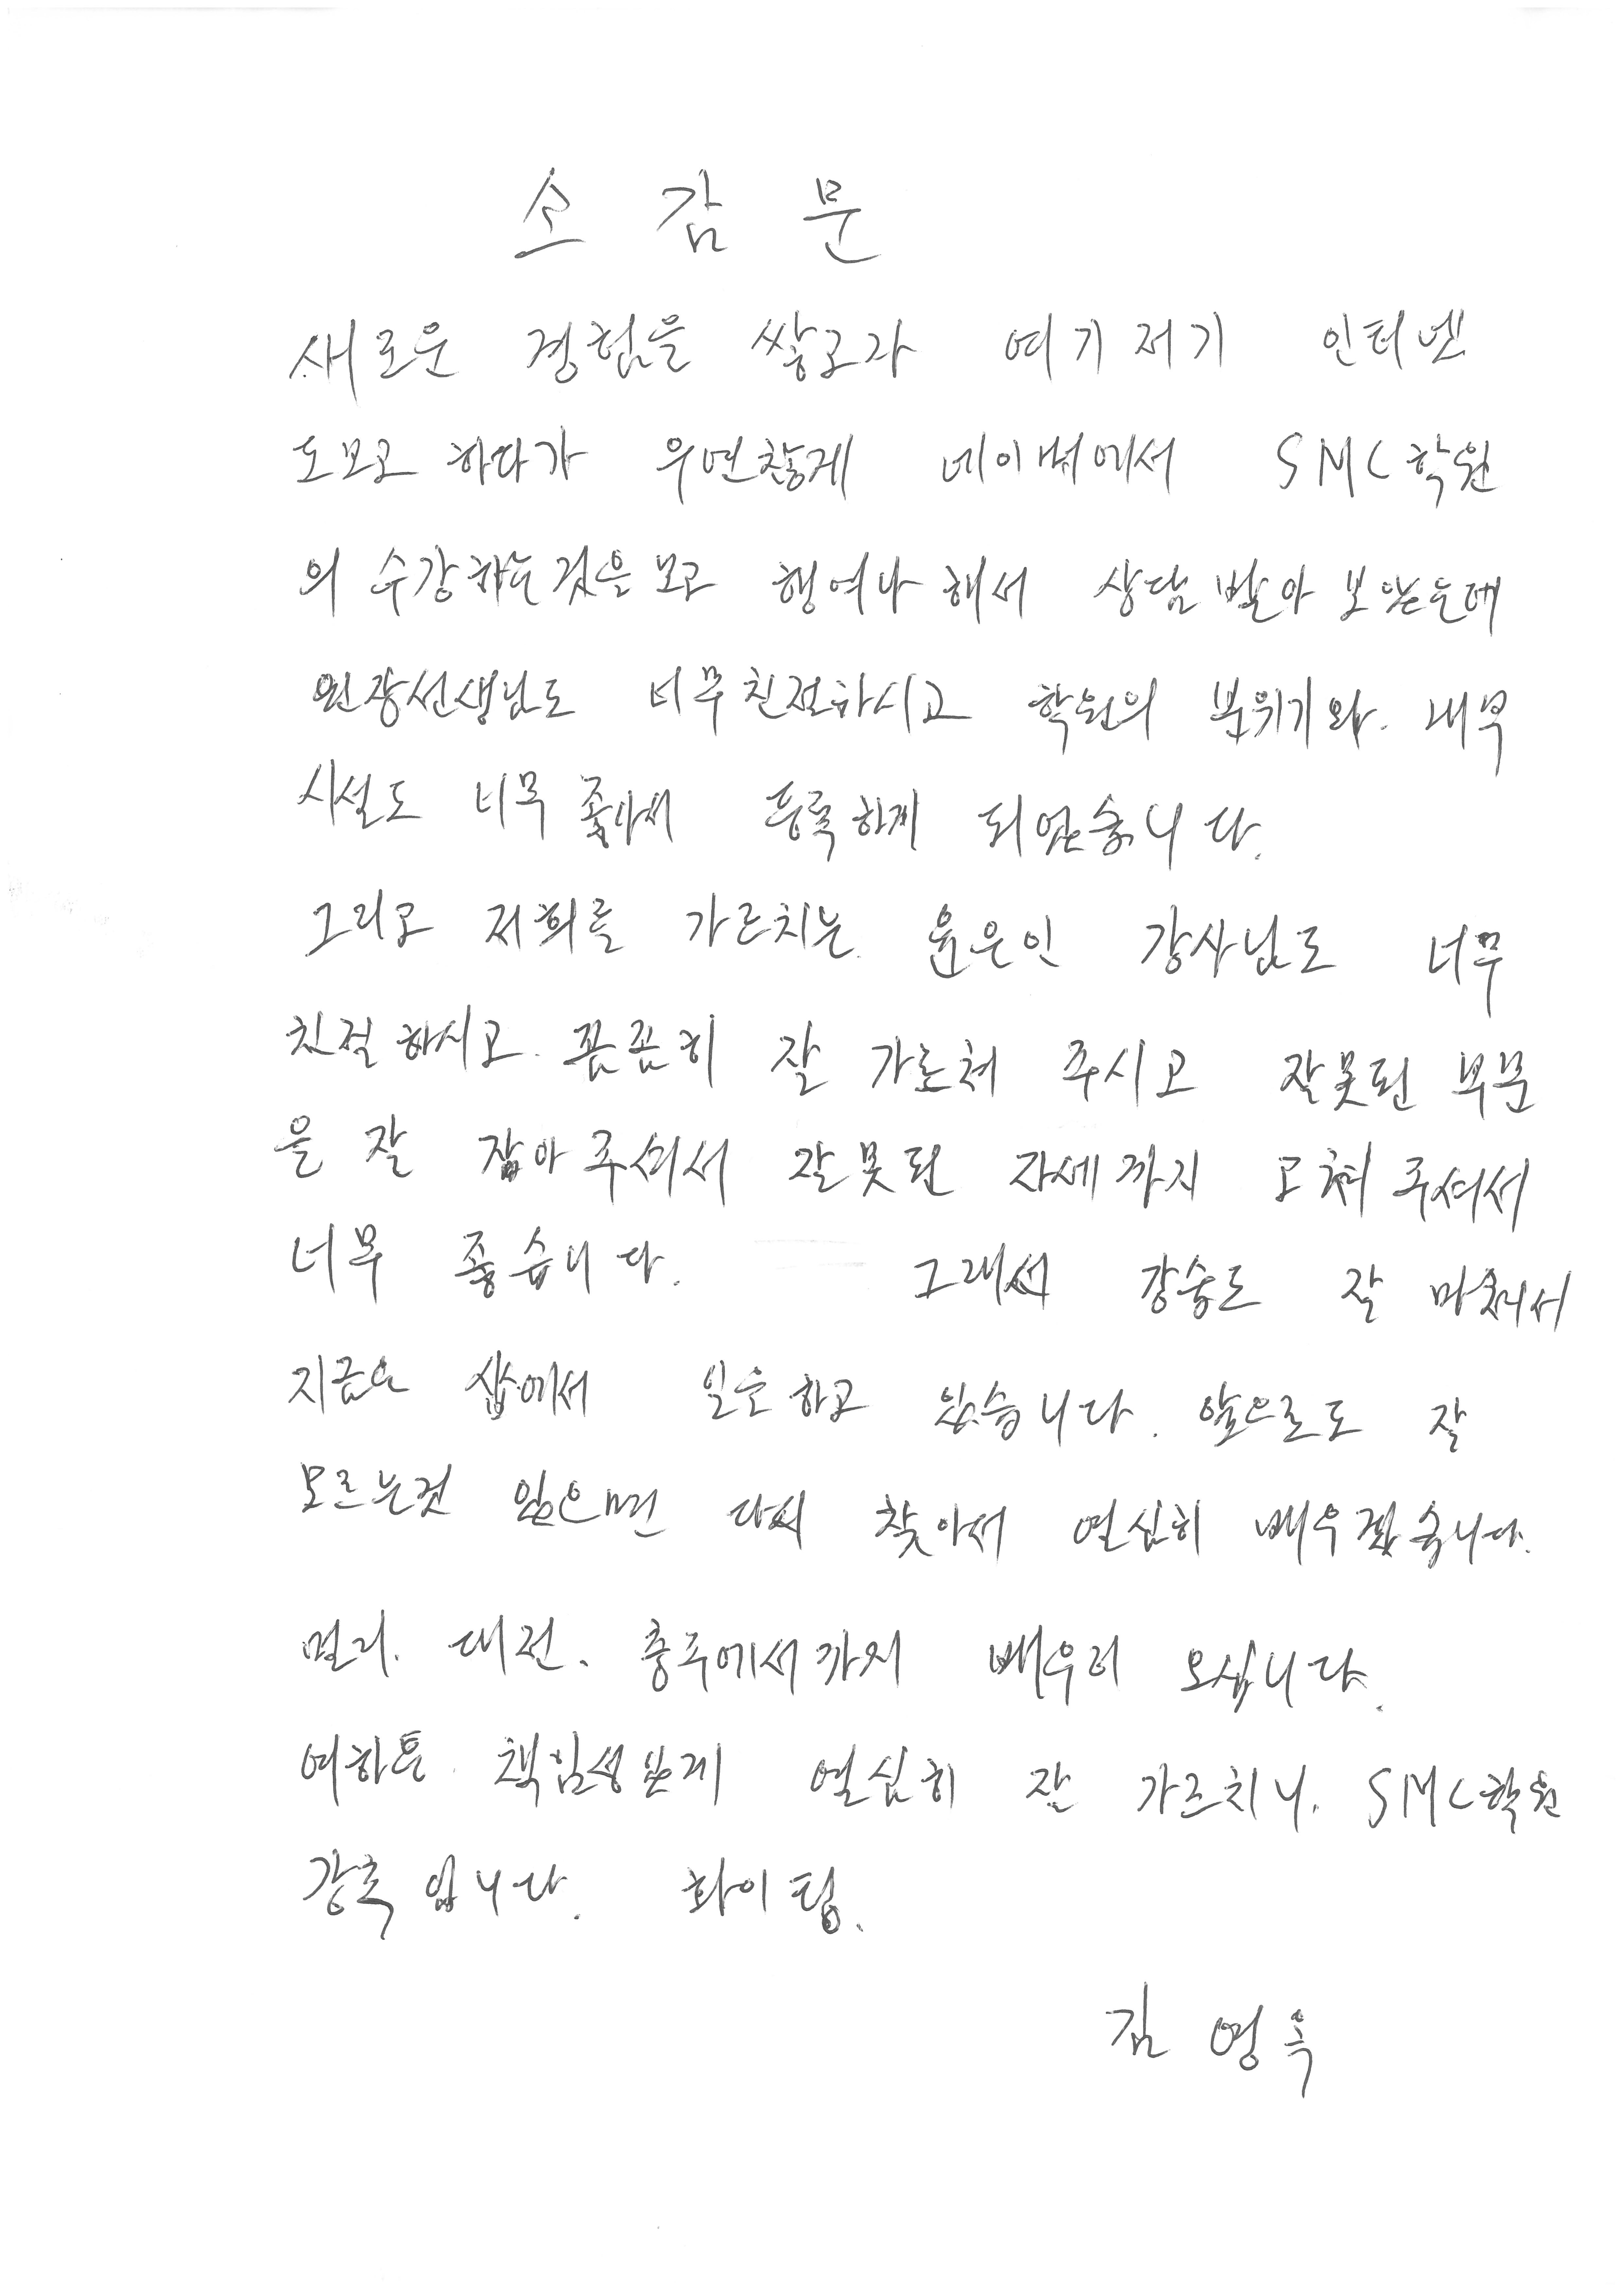 소 감 문
새로운 경험을 쌓고자 여기저기 인터넷
도보고 하다가 우연찮게 네이버에서 SMC학원
의 수강하는것을보고 행여나 해서 상담 받아 보았는데
원장선생님도 너무친절하시고 학원의 분위기와. 내부
시설도 너무 좋아서 등록하게 되었습니다.
그리고 저희를 가르치는 윤은인 강사님도 너무
친절하시고. 꼼꼼히 잘 가르쳐 주시고 잘못된 부문
을 잘 잡아주셔서 잘못된 자세까지 고쳐주셔서
너무 좋습니다. 그래서 강습도 잘 마쳐서
지금은 샵에서 일을하고 있습니다. 앞으로도 잘
모르는것 있으면 다시 찾아서 열심히 배우겠습니다.
멀리. 대전. 충주에서까지 배우러 오십니다.
여하튼 책임성있게 열심히 잘 가르치니. SMC학원
강추입니다. 화이팅.
김영옥